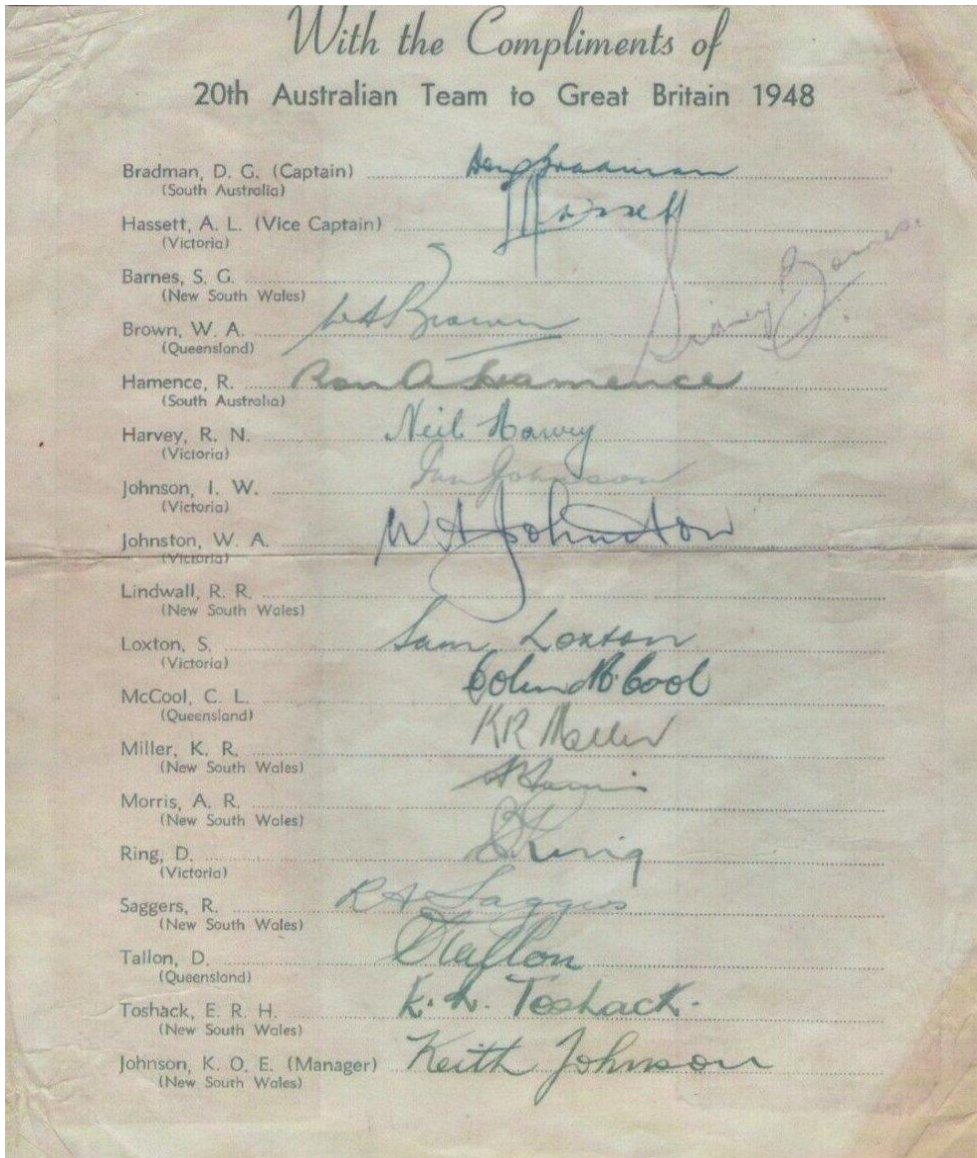 With the Compliments of
20th Australian Team to Great Britain 1948
Bradman, D. G. (Captain) Don Bradman
(South Australia)
Hassett, A. L. (Vice Captain) Hassett
(Victoria)
Barnes, S. G. Sidney Barnes.
(New South Wales)
Brown, W. A. WA Brown
(Queensland)
Hamence, R. Ron A Hamence
(South Australia)
Harvey, R. N. Neil Harvey
(Victoria)
Johnson, I. W. Ian Johnson
(Victoria)
Johnston, W. A. W A Johnston
(Victoria)
Lindwall, R. R.
(New South Wales)
Loxton, S. Sam Loxton
(Victoria)
McCool, C. L. Colin McCool
(Queensland)
Miller, K. R. KR Miller
(New South Wales)
Morris, A. R. A Morris
(New South Wales)
Ring, D. D Ring
(Victoria)
Saggers, R. RA Saggers
(New South Wales)
Tallon, D. D Tallon
(Queensland)
Toshack, E. R. H. E. R. Toshack.
(New South Wales)
Johnson, K. O. E. (Manager) Keith Johnson
(New South Wales)